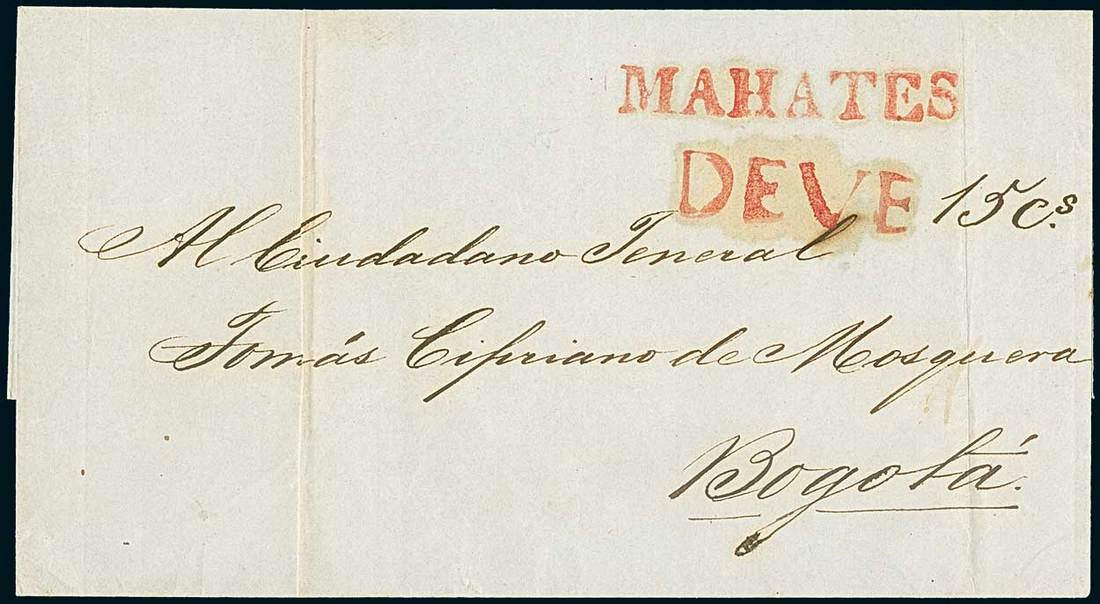 MAHATES
DEVE 15 cs.
Al Ciudadano Jeneral
Tomás Cipriano de Mosquera
Bogotá.